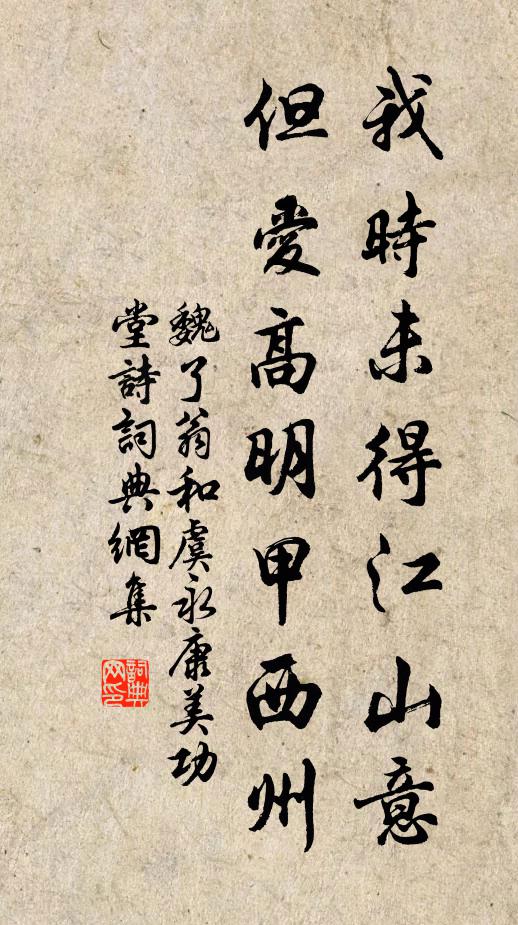 我時未得江山意
但愛高明甲西州
魏了翁和虞永康美功
堂詩詞典網集
詞典
网印